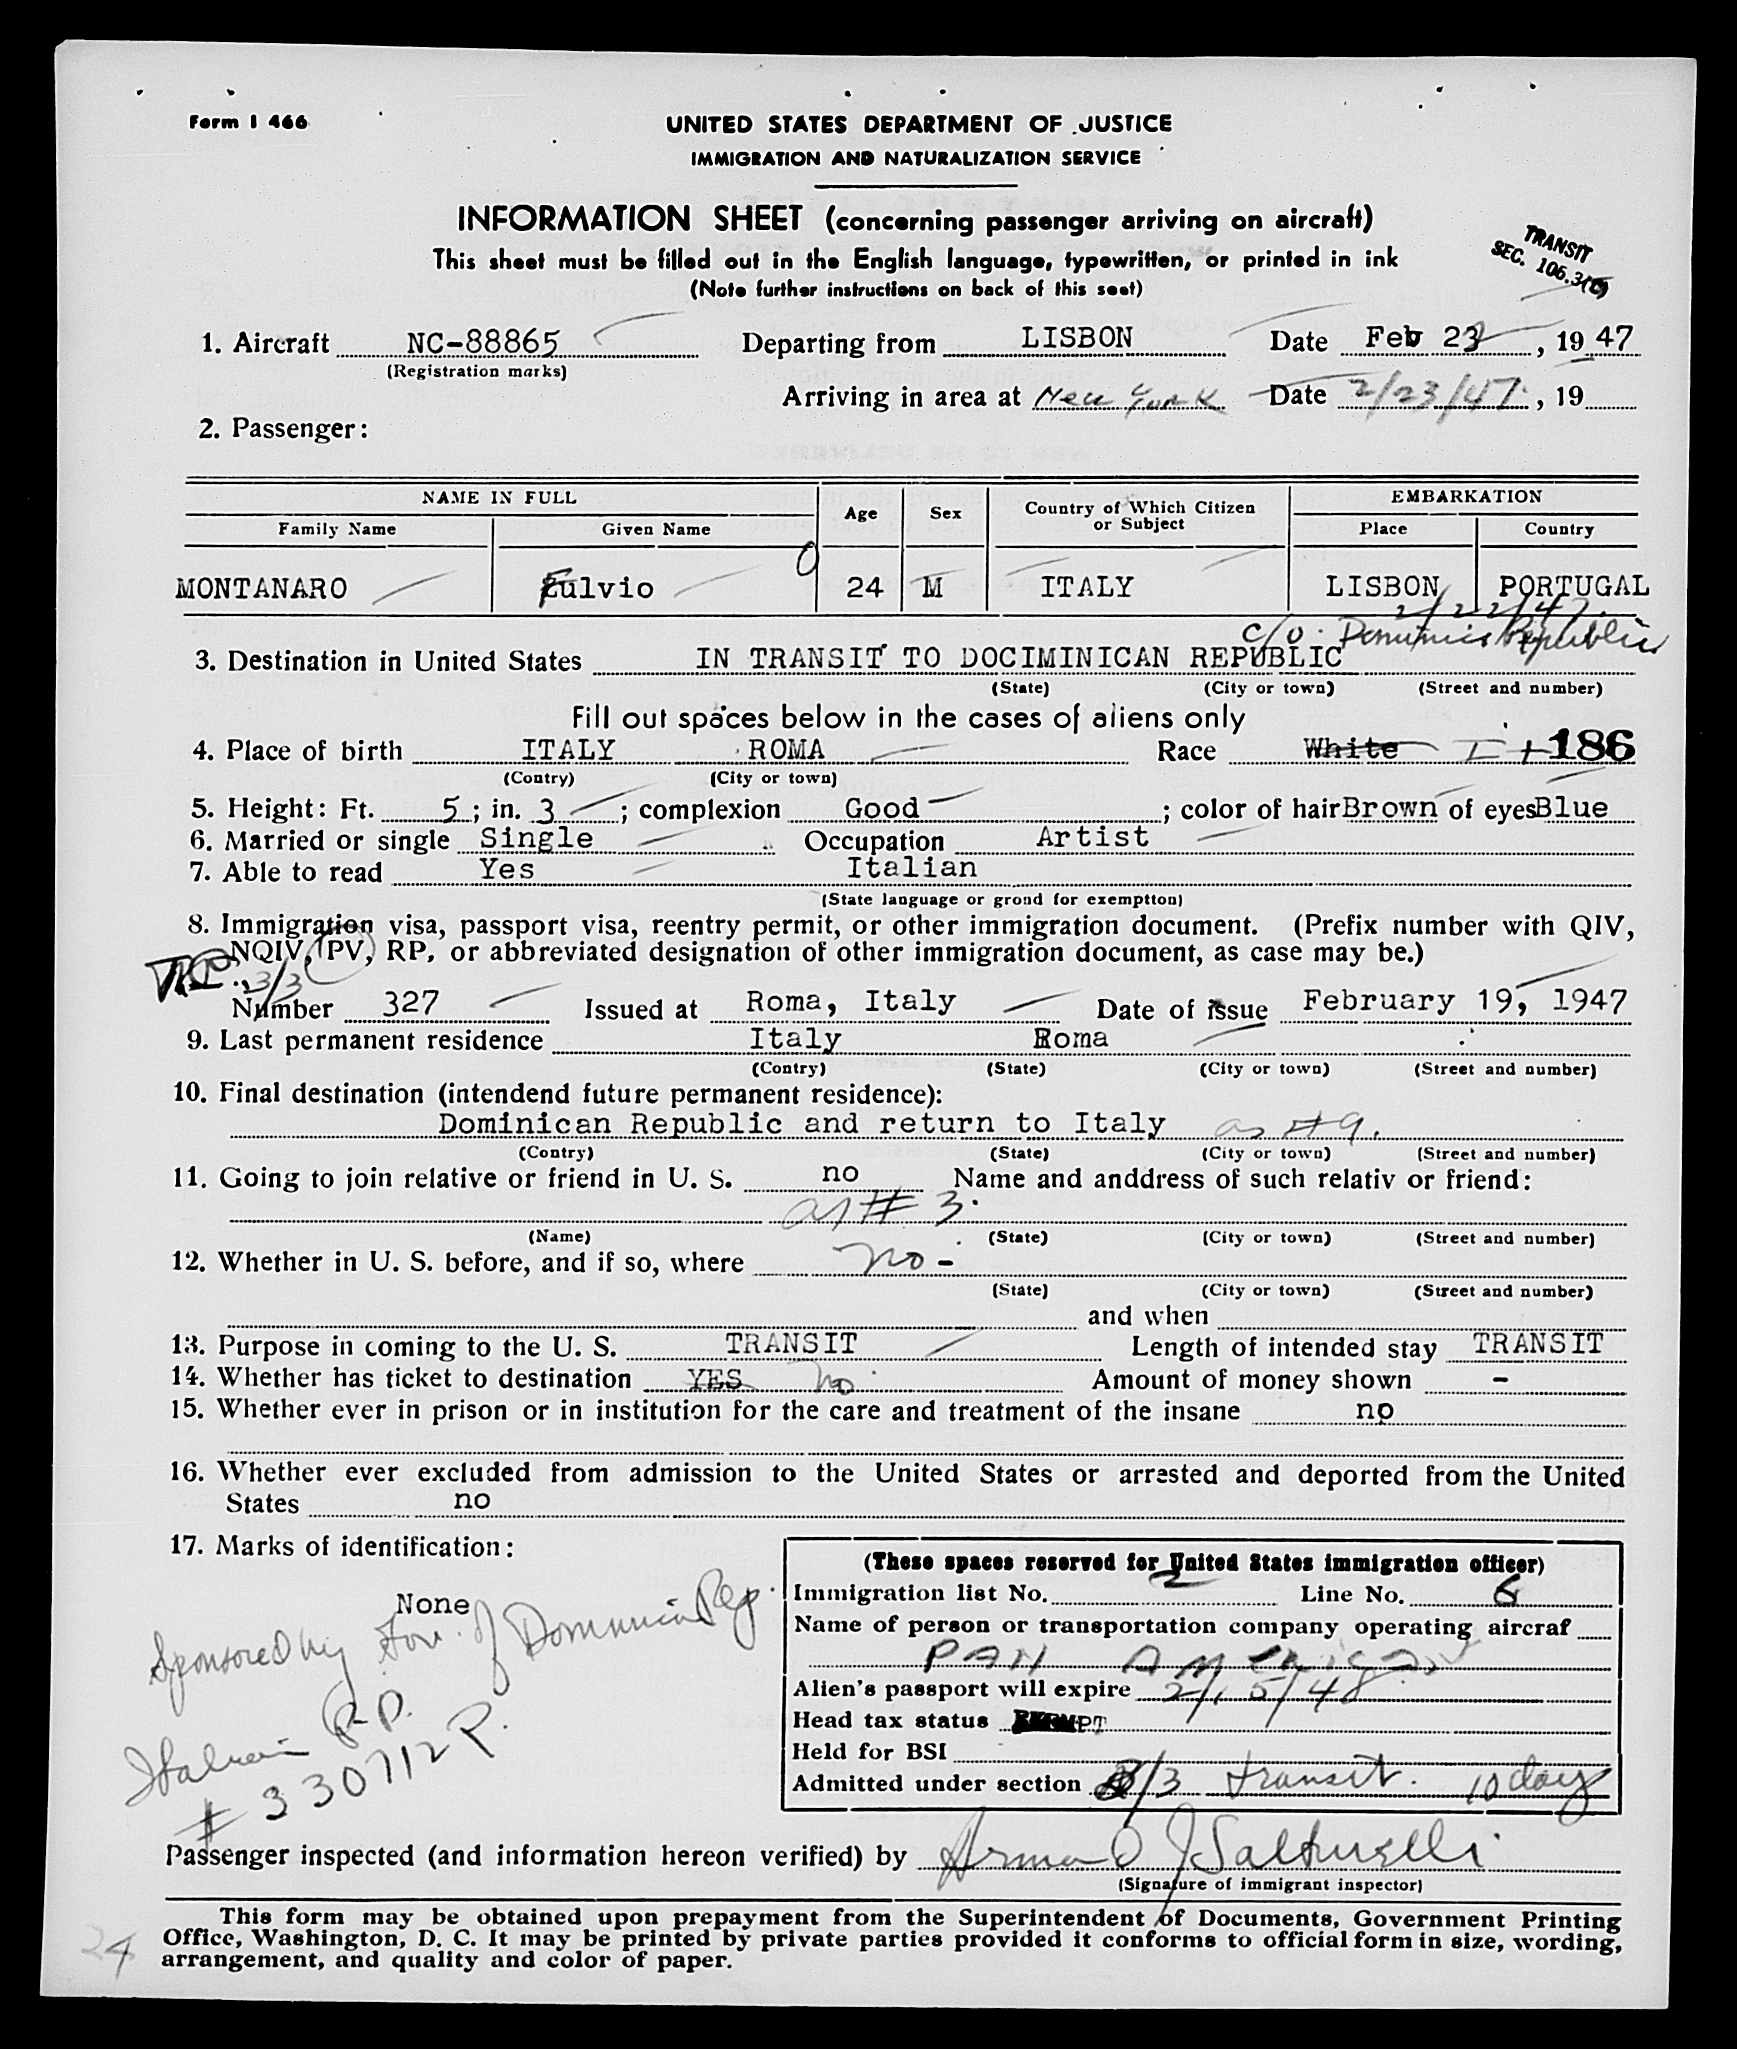 Form I 466
UNITED STATES DEPARTMENT OF JUSTICE
IMMIGRATION AND NATURALIZATION SERVICE
INFORMATION SHEET (concerning passenger arriving on aircraft)
This sheet must be filled out in the English language, typewritten, or printed in ink
(Note further instructions on back of this seet)
TRANSIT
SEC. 106.3(C)
1. Aircraft NC-88865 Departing from LISBON Date Feb 23, 1947
(Registration marks)
Arriving in area at New York Date 2/23/47, 19
2. Passenger:
NAME IN FULL Age Sex Country of Which Citizen or Subject EMBARKATION
Family Name Given Name Place Country
MONTANARO Fulvio O 24 M ITALY LISBON PORTUGAL
2/22/47.
c/o. Dominic Republic
3. Destination in United States IN TRANSIT TO DOCIMINICAN REPUBLIC
(State) (City or town) (Street and number)
Fill out spaces below in the cases of aliens only
4. Place of birth ITALY ROMA Race White It 186
(Contry) (City or town)
5. Height: Ft. 5; in. 3; complexion Good; color of hair Brown of eyes Blue
6. Married or single Single Occupation Artist
7. Able to read Yes Italian
(State language or grond for exemptton)
8. Immigration visa, passport visa, reentry permit, or other immigration document. (Prefix number with QIV,
NQIV, PV, RP, or abbreviated designation of other immigration document, as case may be.)
3/3
Number 327 Issued at Roma, Italy Date of issue February 19, 1947
9. Last permanent residence Italy Roma
(Contry) (State) (City or town) (Street and number)
10. Final destination (intendend future permanent residence):
Dominican Republic and return to Italy as #9.
(Contry) (State) (City or town) (Street and number)
11. Going to join relative or friend in U. S. no Name and anddress of such relativ or friend:
as # 3.
(Name) (State) (City or town) (Street and number)
12. Whether in U. S. before, and if so, where no -
(State) (City or town) (Street and number)
and when
13. Purpose in coming to the U. S. TRANSIT Length of intended stay TRANSIT
14. Whether has ticket to destination YES no Amount of money shown -
15. Whether ever in prison or in institution for the care and treatment of the insane no
16. Whether ever excluded from admission to the United States or arrested and deported from the United
States no
17. Marks of identification:
None
Sponsored by Gov. of Dominic Rep.
Italian P.P.
# 330712 P.
(These spaces reserved for United States immigration officer)
Immigration list No. 2 Line No. 6
Name of person or transportation company operating aircraf
PAN AMERICAN
Alien's passport will expire 2/15/48
Head tax status EXEMPT
Held for BSI
Admitted under section 3/3 transit. 10 day
Passenger inspected (and information hereon verified) by Armand J Salturelli
(Signature of immigrant inspector)
This form may be obtained upon prepayment from the Superintendent of Documents, Government Printing
Office, Washington, D. C. It may be printed by private parties provided it conforms to official form in size, wording,
arrangement, and quality and color of paper.
24